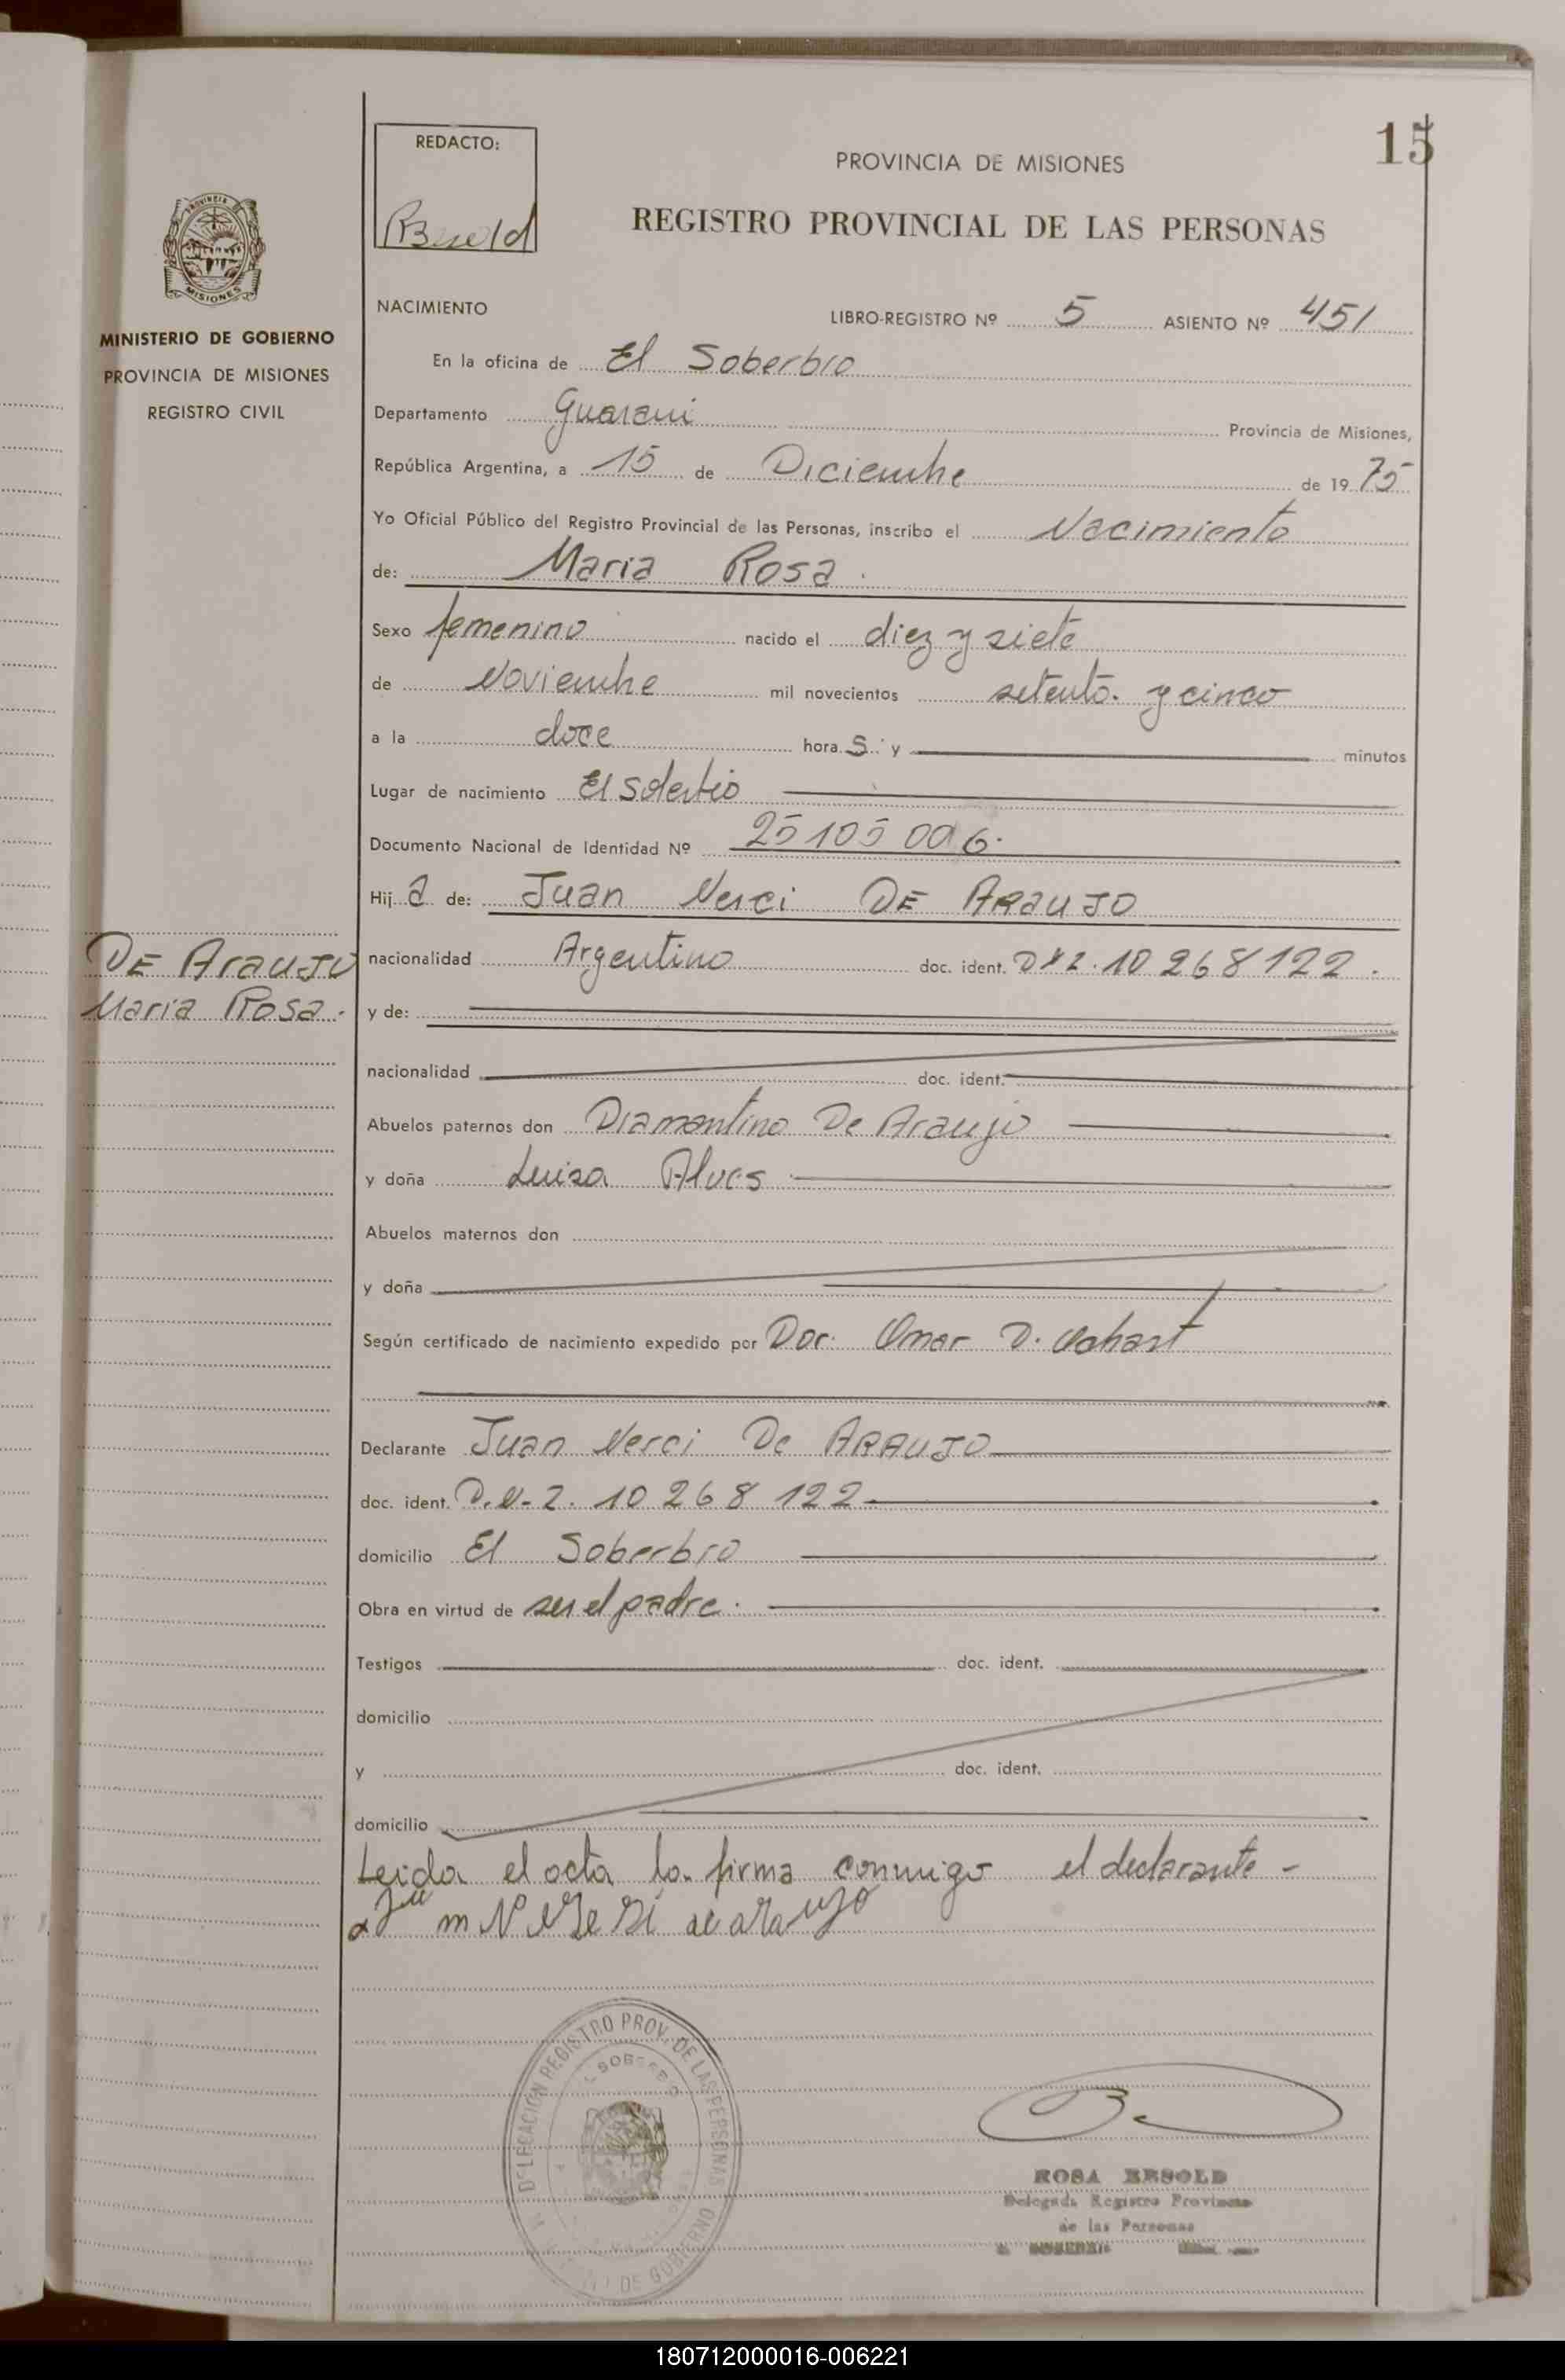 15
REDACTO:
PROVINCIA DE MISIONES
REGISTRO PROVINCIAL DE LAS PERSONAS
PROVINCIA DE
MISIONES
MINISTERIO DE GOBIERNO
PROVINCIA DE MISIONES
REGISTRO CIVIL
NACIMIENTO
LIBRO-REGISTRO Nº 5 ASIENTO Nº 451
En la oficina de El Soberbio
Departamento Guarani Provincia de Misiones,
República Argentina, a 15 de Diciembre de 1975
Yo Oficial Público del Registro Provincial de las Personas, inscribo el Nacimiento
de: Maria Rosa.
Sexo femenino nacido el diez y siete
de Noviembre mil novecientos setenta y cinco
a la doce hora s y minutos
Lugar de nacimiento El Soberbio
Documento Nacional de Identidad Nº 25105006.
Hij a de: Juan Nerci DE ARAUJO
DE ARAUJO
Maria Rosa.
nacionalidad Argentino doc. ident. 10 268 122.
y de:
nacionalidad doc. ident.
Abuelos paternos don Diamantino De Araujo
y doña Luisa Alves
Abuelos maternos don
y doña
Según certificado de nacimiento expedido por Dor. Omar D.
Declarante Juan Nerci De ARAUJO
doc. ident. D.N. 2. 10 268 122
domicilio El Soberbio
Obra en virtud de ser el padre.
Testigos doc. ident.
domicilio
y doc. ident.
domicilio
Leida el acta la firma conmigo el declarante -
de araujo
DELEGACION REGISTRO PROV. DE LAS PERSONAS
DE GOBIERNO
ROSA BESOLD
Delegada Registro Provincial
de las Personas
180712000016-006221